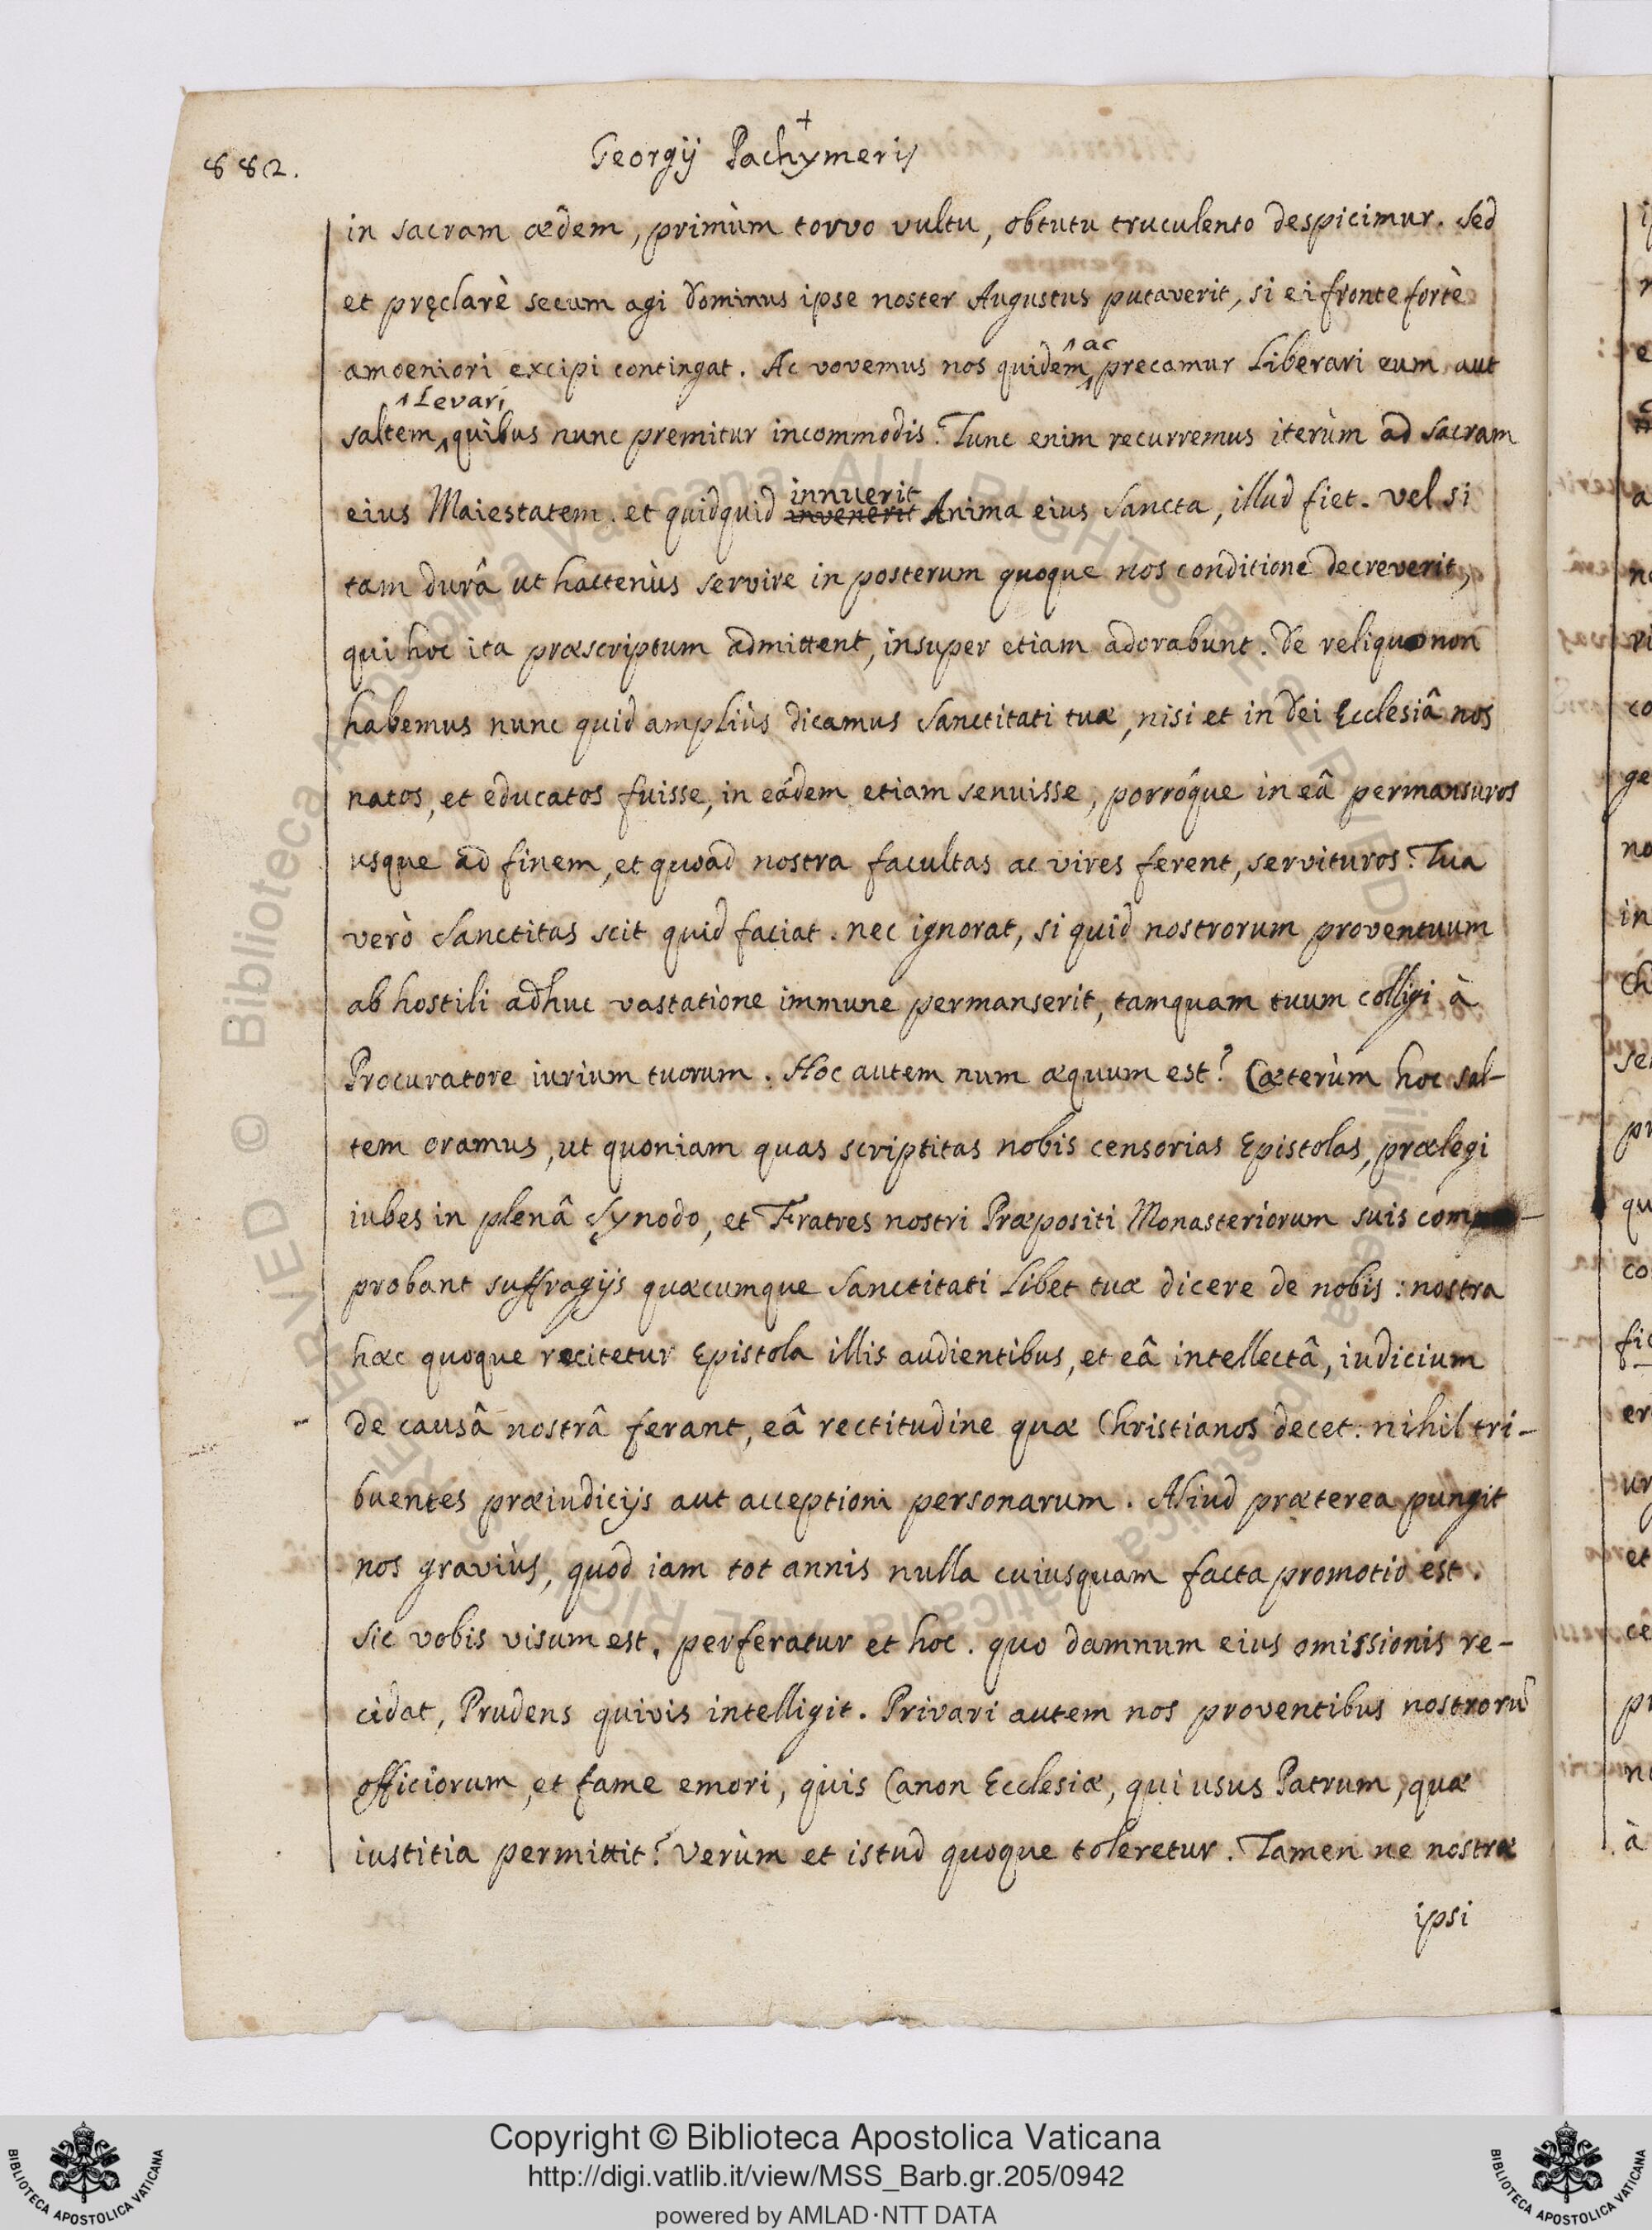 882.
Georgij Pachymeris
in sacram ædem, primùm torvo vultu, obtutu truculento despicimur. Sed
et pręclarè secum agi Dominus ipse noster Augustus putaverit, si ei fronte fortè
amoeniori excipi contingat. Ac vovemus nos quidem ac precamur Liberari eum aut
saltem Levari quibus nunc premitur incommodis. Tunc enim recurremus iterùm ad Sacram
eius Maiestatem. et quidquid invenerit innuerit Anima eius Sancta, illud fiet. Vel si
tam durâ ut hactenùs servire in posterum quoque nos conditione decreverit,
qui hoc ita præscriptum admittent, insuper etiam adorabunt. De reliquo non
habemus nunc quid ampliùs dicamus Sanctitati tuæ, nisi et in Dei Ecclesiâ nos
natos, et educatos fuisse, in eâdem etiam senuisse, porróque in eâ permansuros
usque ad finem, et quoad nostra facultas ac vires ferent, servituros. Tua
verò Sanctitas scit quid faciat. nec ignorat, si quid nostrorum proventuum
ab hostili adhuc vastatione immune permanserit, tamquam tuum colligi à
Procuratore iurium tuorum. Hoc autem num æquum est? Cæterùm hoc sal-
tem oramus, ut quoniam quas scriptitas nobis censorias Epistolas, prælegi
iubes in plenâ Synodo, et Fratres nostri Præpositi Monasteriorum suis com-
probant suffragijs quæcumque Sanctitati Libet tuæ dicere de nobis: nostra
hæc quoque recitetur Epistola illis audientibus, et eâ intellectâ, iudicium
de causâ nostrâ ferant, eâ rectitudine quæ Christianos decet: nihil tri-
buentes præiudicijs aut acceptioni personarum. Aliud præterea pungit
nos graviùs, quod iam tot annis nulla cuiusquam facta promotio est.
Sic vobis visum est. perferatur et hoc. quo damnum eius omissionis re-
cidat, Prudens quivis intelligit. Privari autem nos proventibus nostrorũ
officiorum, et fame emori, quis Canon Ecclesiæ, qui usus Patrum, quæ
iustitia permittit? Verùm et istud quoque toleretur. Tamen ne nostræ
ipsi
Copyright © Biblioteca Apostolica Vaticana
http://digi.vatlib.it/view/MSS_Barb.gr.205/0942
powered by AMLAD·NTT DATA